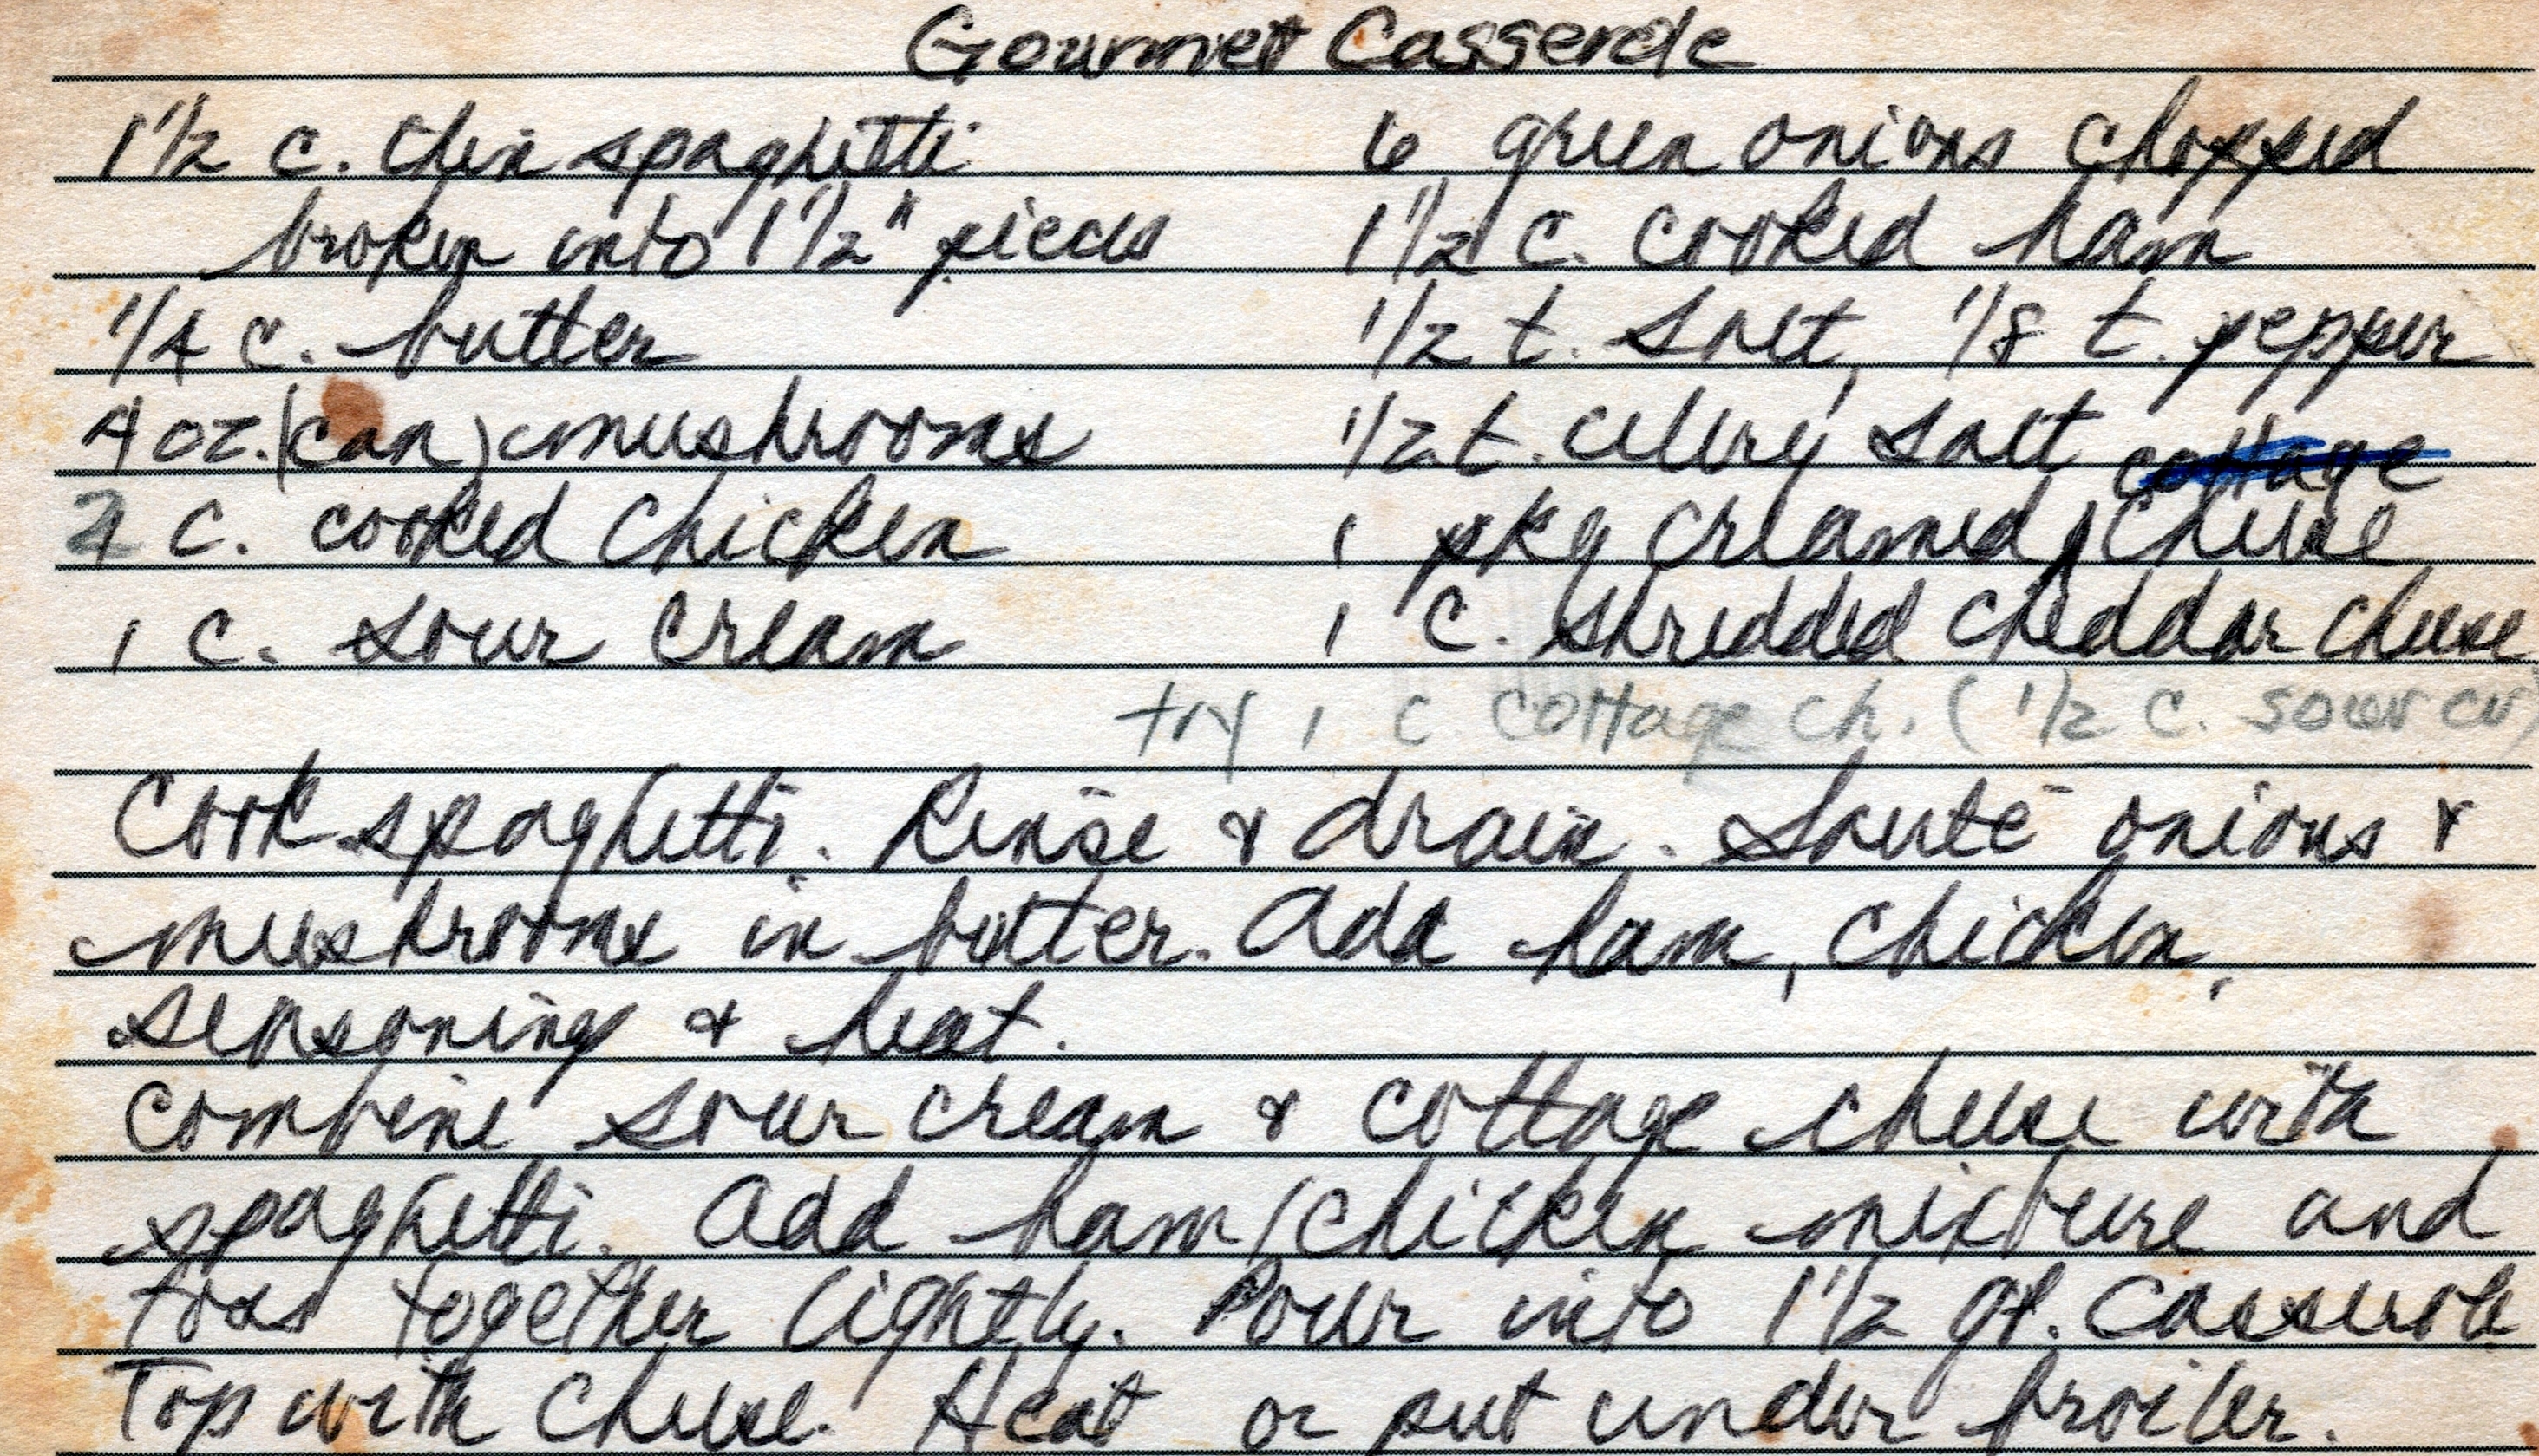 Gourmet Casserole
1 1/2 c. thin spaghetti
broken into 1 1/2" pieces
1/4 c. butter
4 oz. (can) mushrooms
2 c. cooked chicken
1 c. sour cream
6 green onions chopped
1 1/2 c. cooked ham
1/2 t. salt, 1/8 t. pepper
1/2 t. celery salt
cottage
1 pkg creamed cheese
1 c. shredded cheddar cheese
try 1 c cottage ch. (1/2 c. sour cr)
Cook spaghetti. Rinse & drain. Sauté onions &
mushrooms in butter. Add ham, chicken,
seasoning & heat.
Combine sour cream & cottage cheese with
spaghetti. Add ham/chicken mixture and
toss together lightly. Pour into 1 1/2 qt. casserole
Top with cheese. Heat or put under broiler.